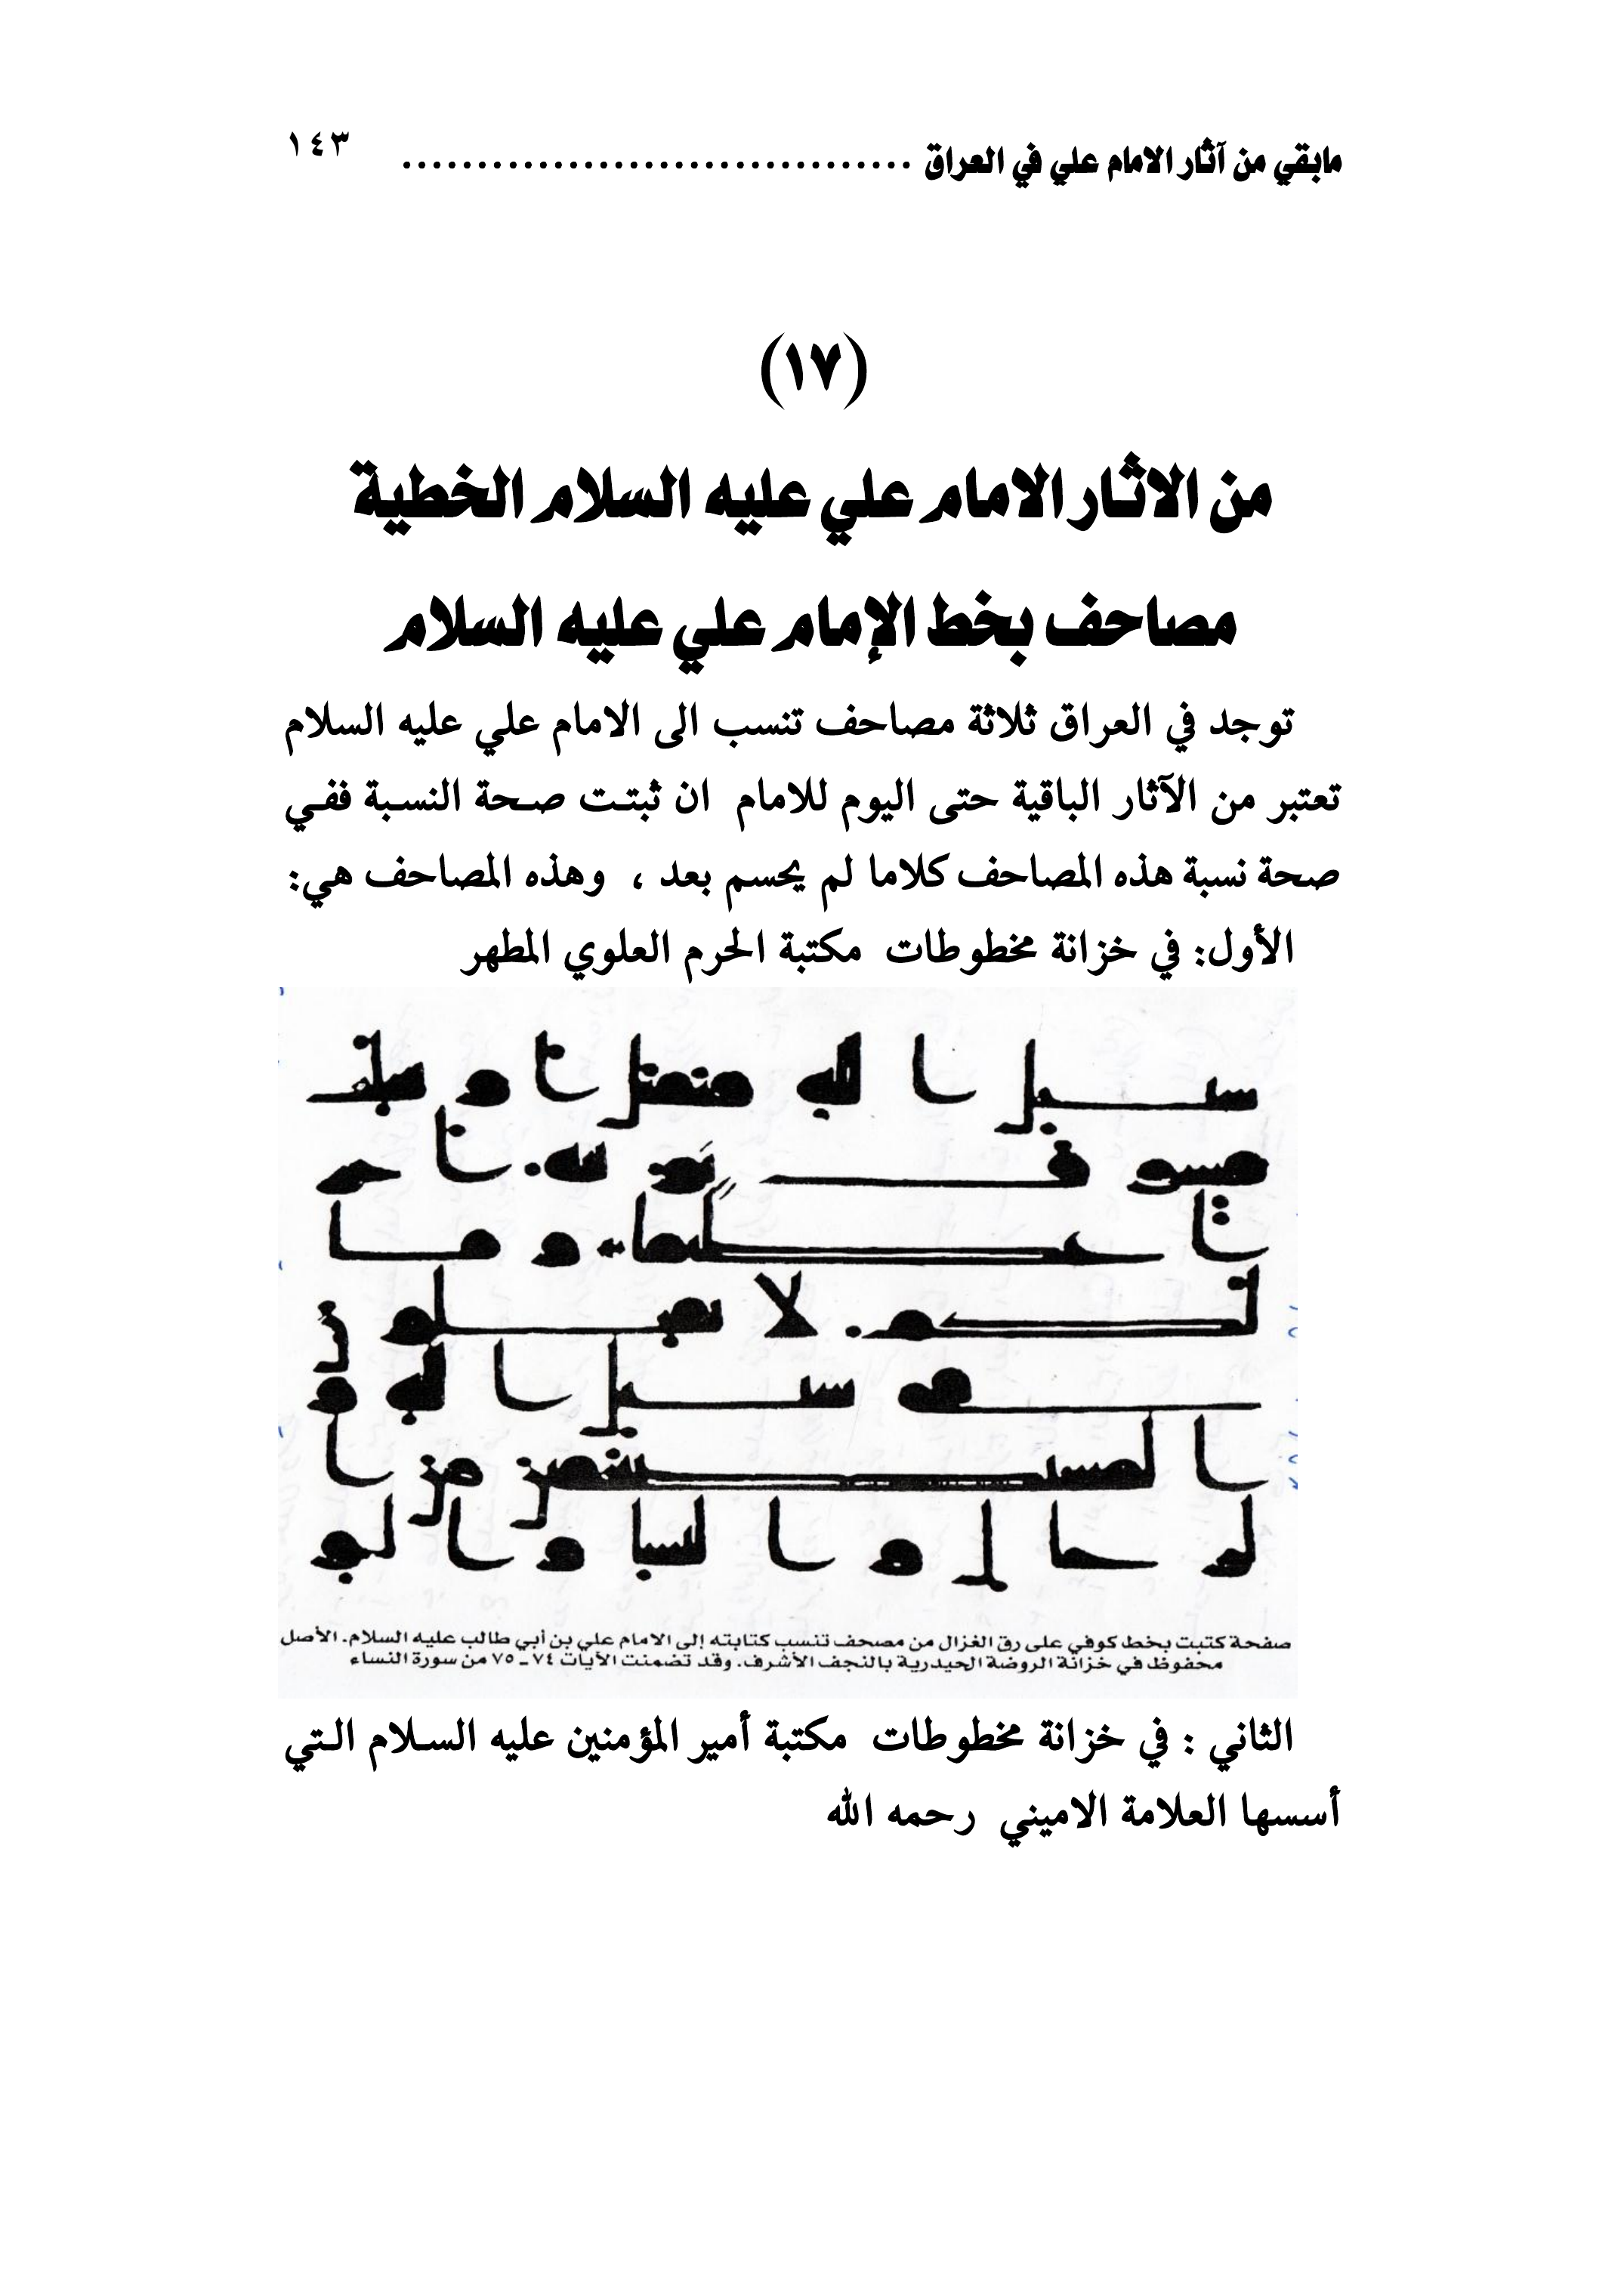 مابقي من آثار الامام علي في العراق .................................. ١٤٣
(١٧)
من الاثار الامام علي عليه السلام الخطية
مصاحف بخط الإمام علي عليه السلام
توجد في العراق ثلاثة مصاحف تنسب الى الامام علي عليه السلام
تعتبر من الآثار الباقية حتى اليوم للامام ان ثبتت صحة النسبة ففي
صحة نسبة هذه المصاحف كلاما لم يحسم بعد ، وهذه المصاحف هي:
الأول: في خزانة مخطوطات مكتبة الحرم العلوي المطهر
سبيل ا لله فيقتل ا و يغلب
فسو ف نؤتيه ا جر
ا عظيما و ما
لكم لا تقتلون
في سبيل ا لله و
ا لمستضعفين من ا
لر جا ل و ا لنسا و ا لو
صفحة كتبت بخط كوفي على رق الغزال من مصحف تنسب كتابته إلى الامام علي بن أبي طالب عليه السلام. الأصل
محفوظ في خزانة الروضة الحيدرية بالنجف الأشرف. وقد تضمنت الآيات ٧٤ ـ ٧٥ من سورة النساء
الثاني : في خزانة مخطوطات مكتبة أمير المؤمنين عليه السلام التي
أسسها العلامة الاميني رحمه الله